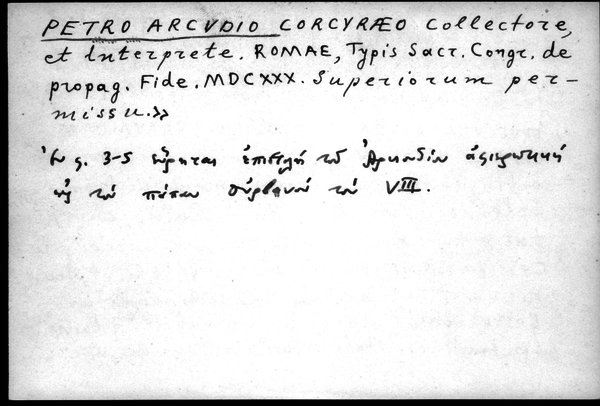 PETRO ARCVDIO CORCYRÆO Collectore,
et Interprete. ROMAE, Typis Sacr. Congr. de
propag. Fide. MDCXXX. Superiorum per-
missu.»
Ἐν σ. 3-5 εὕρηται ἐπιστολὴ τοῦ Ἀρκουδίου ἀφιερωτικὴ
εἰς τὸν πάπαν Οὐρβανὸν τὸν VIII.